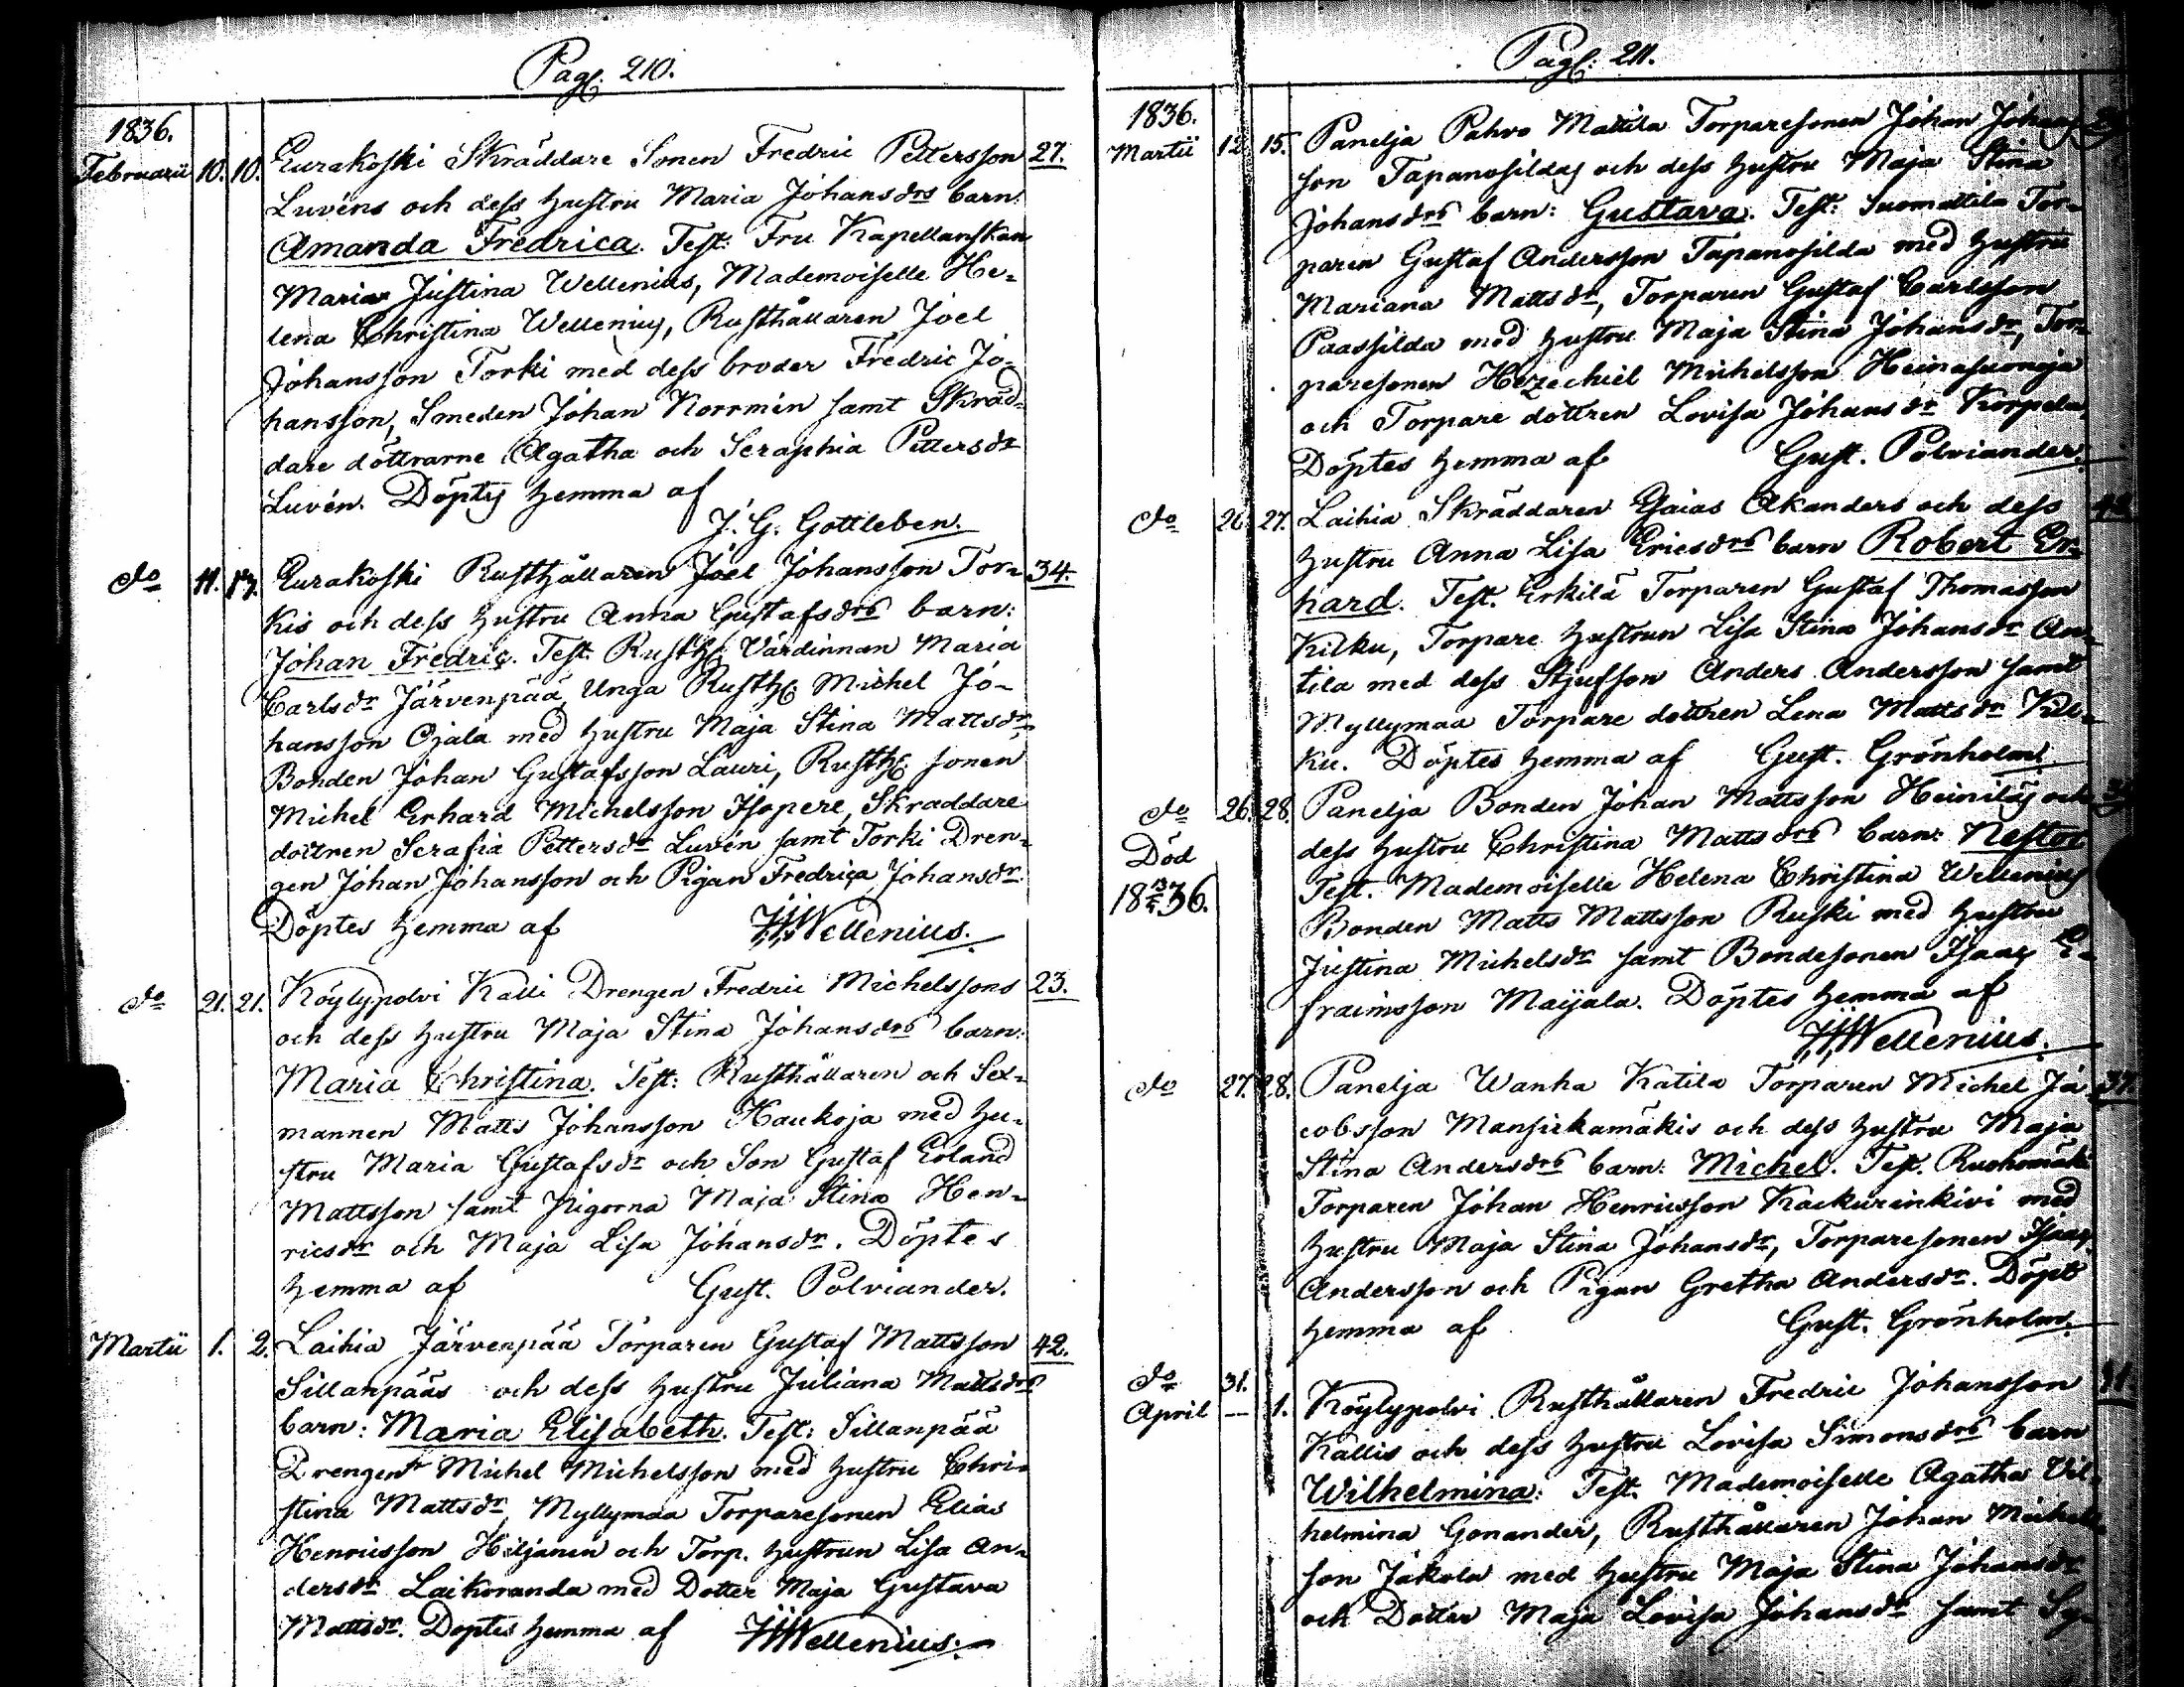 Pag. 210.
1836.
Februarii 10. 10. Eurakoski Skräddare Sonen Fredric Pettersson 27.
Luvéns och dess hustru Maria Johansdrs barn:
Amanda Fredrica. Test: Fru Kapellanskan
Maria Justina Wellenius, Mademoiselle He-
lena Christina Wellenius, Rusthållaren Joel
Johansson Torki med dess broder Fredric Jo-
hansson, Smeden Johan Korrmin samt Skräd-
dare döttrarne Agatha och Seraphia Pettersdr
Luvén. Döptes hemma af
J. G. Gottleben.
do 11. 13. Eurakoski Rusthållaren Joel Johansson Tor- 34.
kis och dess hustru Anna Gustafsdrs barn:
Johan Fredric. Test. Rusth. Värdinnan Maria
Carlsdr Järvenpää, Unga Rusth. Michel Jo-
hansson Ojala med hustru Maja Stina Mattsdr
Bonden Johan Gustafsson Lauri, Rusth. sonen
Michel Erhard Michelsson Isopere, Skräddare
dottren Serafia Pettersdr Luvén samt Torki Dren-
gen Johan Johansson och Pigan Fredrica Johansdr.
Döptes hemma af Wellenius.
do 21. 21. Köylypolvi Kalli Drengen Fredric Michelssons 23.
och dess hustru Maja Stina Johansdrs barn:
Maria Christina. Test: Rusthållaren och Sex-
mannen Matts Johansson Haukoja med hu-
stru Maria Gustafsdr och Son Gustaf Erland
Mattsson samt pigorna Maja Stina Hen-
ricsdr och Maja Lisa Johansdr. Döptes
hemma af Gust. Polviander.
Martii 1. 2. Laihia Järvenpää Torparen Gustaf Mattsson 42.
Sillanpääs och dess hustru Juliana Mattsdrs
barn: Maria Elisabeth. Test: Sillanpää
Drengen Michel Michelsson med hustru Chri-
stina Mattsdr, Myllymaa Torparesonen Elias
Henricsson Hiljanen och Torp. hustrun Lisa An-
dersdr Laikoranda med Dotter Maja Gustava
Mattsdr. Döptes hemma af Wellenius.
Pag. 211.
1836.
Martii 12 15. Panelja Pahvo Mattila Torparesonen Johan Johans-
son Tapanosildas och dess hustru Maja Stina
Johansdrs barn: Gustava. Test: Suomattila Tor-
paren Gustaf Andersson Tapanosilda med hustru
Mariana Mattsdr, Torparen Gustaf Carlsson
Paassilda med hustru Maja Stina Johansdr, Tor-
paresonen Hezechiel Michelsson Heinasuonoja
och Torpare döttren Lovisa Johansdr Korpela,
Döptes hemma af Gust. Polviander.
do 26. 27. Laihia Skräddaren Esaias Akanders och dess 42
hustru Anna Lisa Ericsdrs barn Robert Er-
hard. Test. Erkilä Torparen Gustaf Thomasson
Kilku, Torpare hustrun Lisa Stina Johansdr An-
tila med dess Stjufson Anders Andersson samt
Myllymaa Torpare dottren Lena Mattsdr Kil-
ku. Döptes hemma af Gust. Grönholm.
do 26. 28. Panelja Bonden Johan Mattsson Heiniläs och
Död
18 36.
dess hustru Christina Mattsdrs barn: Nestor
Test. Mademoiselle Helena Christina Wellenius
Bonden Matts Mattsson Ruski med hustru
Justina Michelsdr samt Bondesonen Isaac E-
fraimsson Maijala. Döptes hemma af
Wellenius.
do 27. 28. Panelja Wanha Katila Torparen Michel Ja- 37.
cobsson Mansickamäkis och dess hustru Maja
Stina Andersdrs barn: Michel. Test. Ruohomäki
Torparen Johan Henricsson Kackurinkivi med
hustru Maja Stina Johansdr, Torparesonen Isaac
Andersson och Pigan Gretha Andersdr. Döpt
hemma af Gust. Grönholm.
do 31.
April — 1. Köylypolvi Rusthållaren Fredric Johansson
Kallis och dess hustru Lovisa Simonsdrs barn
Wilhelmina: Test. Mademoiselle Agatha Vil-
helmina Gonander, Rusthållaren Johan Michels-
son Jakola med hustru Maja Stina Johansdr
och Dotter Maja Lovisa Johansdr samt Sy-